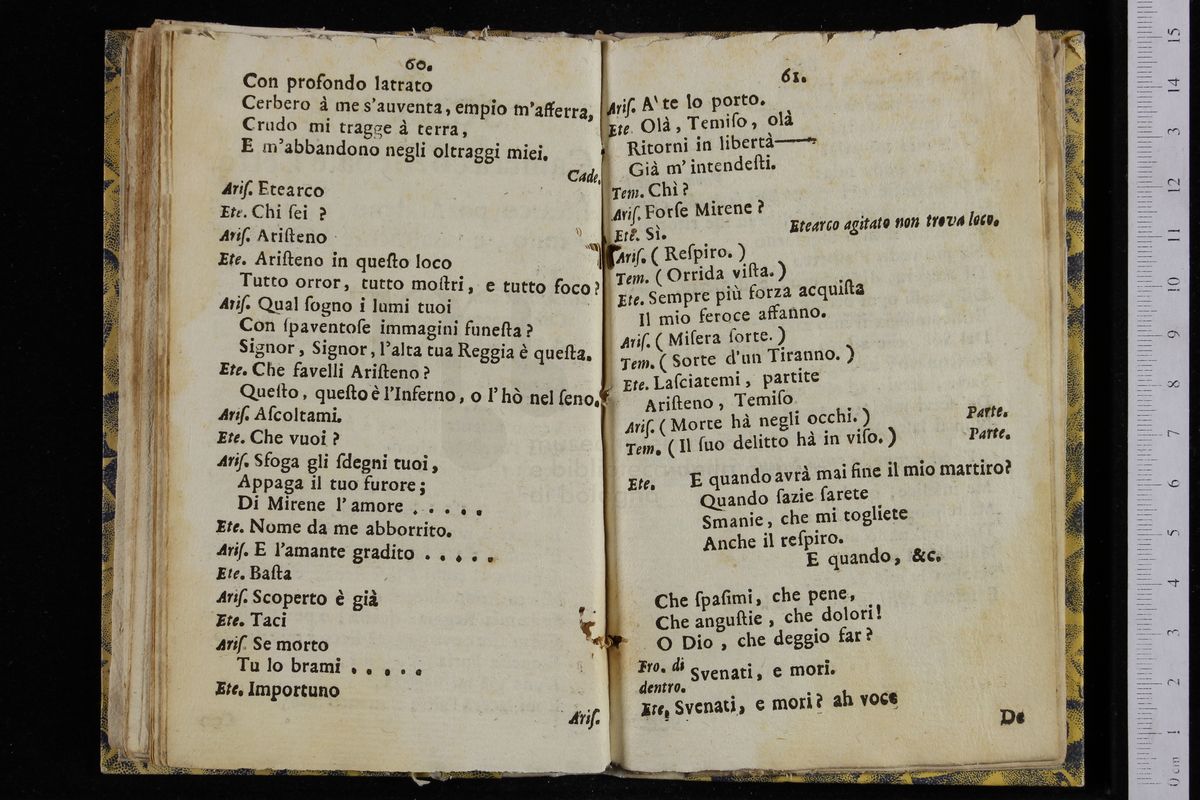 60.
Con profondo latrato
Cerbero à me s'auventa, empio m'afferra,
Crudo mi tragge à terra,
E m'abbandono negli oltraggi miei.
Cade.
Ariſ. Etearco
Ete. Chi ſei ?
Ariſ. Ariſteno
Ete. Ariſteno in queſto loco
Tutto orror, tutto moſtri, e tutto foco?
Ariſ. Qual ſogno i lumi tuoi
Con ſpaventoſe immagini funeſta ?
Signor, Signor, l'alta tua Reggia è queſta.
Ete. Che favelli Ariſteno ?
Queſto, queſto è l'Inferno, o l'hò nel ſeno.
Ariſ. Aſcoltami.
Ete. Che vuoi ?
Ariſ. Sfoga gli ſdegni tuoi,
Appaga il tuo furore;
Di Mirene l'amore . . . . .
Ete. Nome da me abborrito.
Ariſ. E l'amante gradito . . . . .
Ete. Baſta
Ariſ. Scoperto è già
Ete. Taci
Ariſ. Se morto
Tu lo brami . . . . .
Ete. Importuno
Ariſ.
61.
Ariſ. A' te lo porto.
Ete. Olà, Temiſo, olà
Ritorni in libertà——
Già m'intendeſti.
Tem. Chì ?
Ariſ. Forſe Mirene ?
Ete. Sì.
Etearco agitato non trova loco.
Ariſ. ( Reſpiro. )
Tem. ( Orrida viſta. )
Ete. Sempre più forza acquiſta
Il mio feroce affanno.
Ariſ. ( Miſera ſorte. )
Tem. ( Sorte d'un Tiranno. )
Ete. Laſciatemi, partite
Ariſteno, Temiſo
Ariſ. ( Morte hà negli occhi. ) Parte.
Tem. ( Il ſuo delitto hà in viſo. ) Parte.
Ete. E quando avrà mai fine il mio martiro?
Quando ſazie ſarete
Smanie, che mi togliete
Anche il reſpiro.
E quando, &c.
Che ſpaſimi, che pene,
Che anguſtie, che dolori!
O Dio, che deggio far?
Fro. di dentro. Svenati, e mori.
Ete. Svenati, e mori? ah voce
De